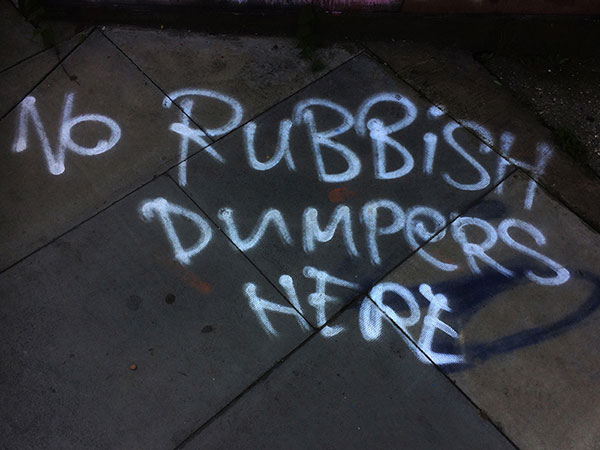 No RUBBiSH
DUMP@RS
HERE